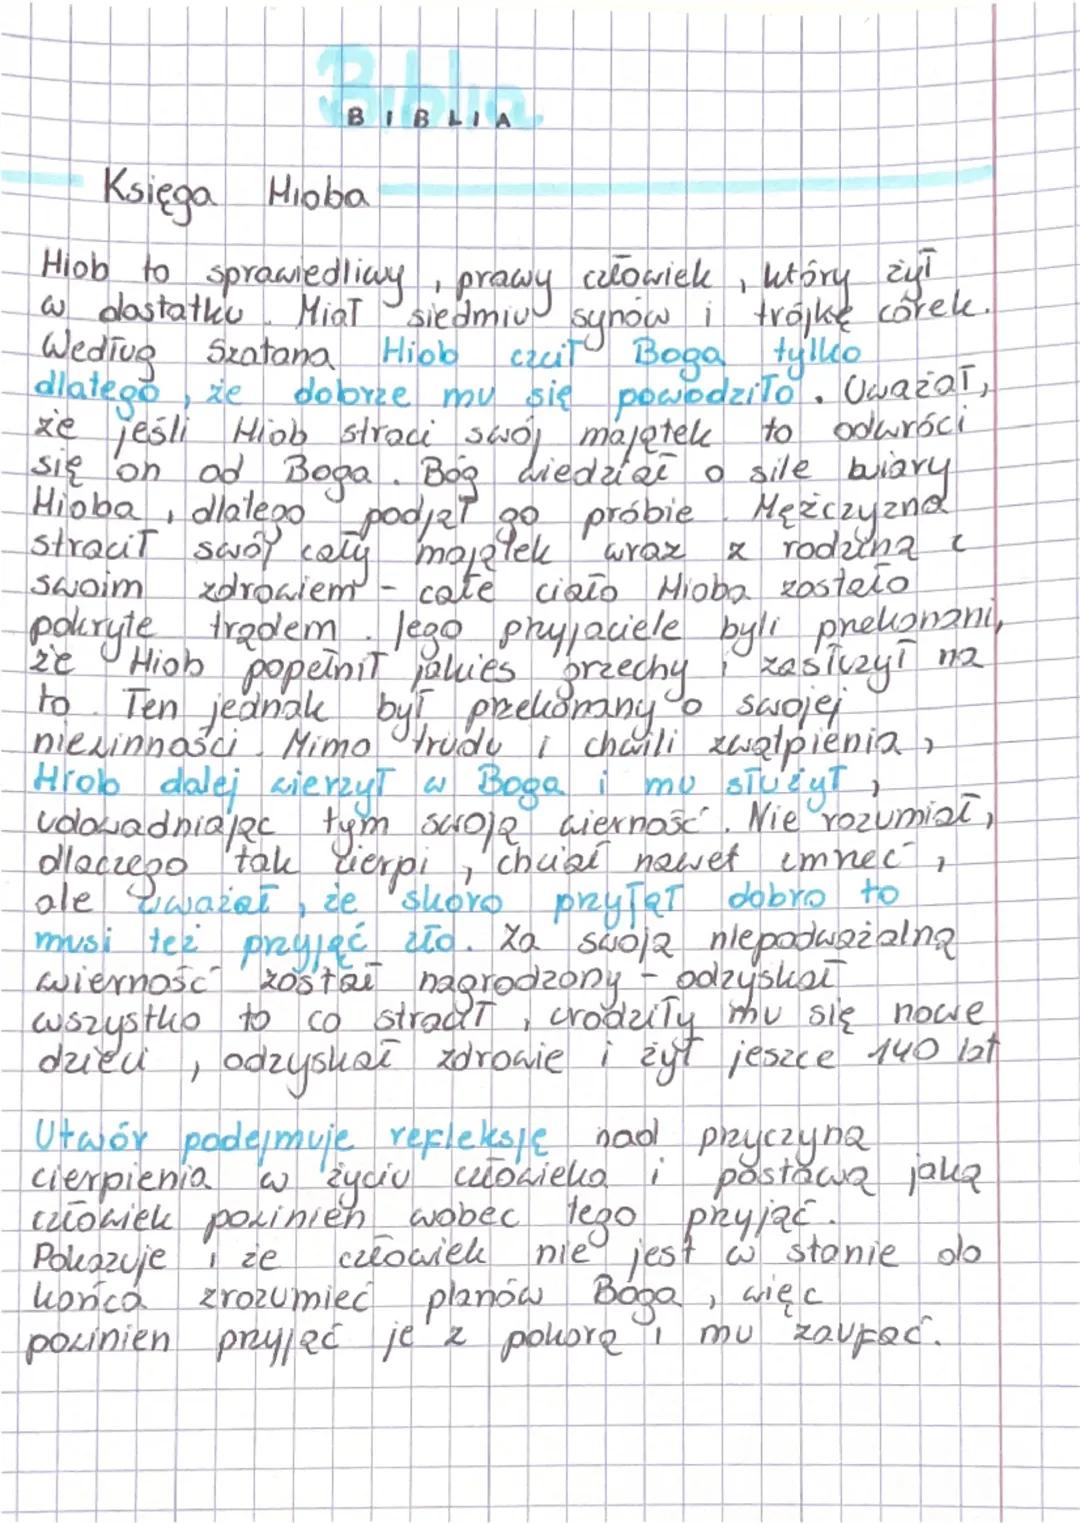 Biblia
BIBLIA
Księga Hioba
Hiob to sprawiedliwy, prawy człowiek, który żył
w dostatku. Miał siedmiu synów i trójkę córek.
Według Szatana Hiob czcił Boga tylko
dlatego, że dobrze mu się powodziło. Uważał,
że jeśli Hiob straci swój majątek to odwróci
się on od Boga. Bóg wiedział o sile wiary
Hioba, dlatego podjął go próbie. Mężczyzna
stracił swój cały majątek wraz z rodziną i
swoim zdrowiem - całe ciało Hioba zostało
pokryte trądem. Jego przyjaciele byli przekonani,
że Hiob popełnił jakieś grzechy i zasłużył na
to. Ten jednak był przekonany o swojej
niewinności. Mimo trudu i chwili zwątpienia,
Hiob dalej wierzył w Boga i mu służył,
udowadniając tym swoją wierność. Nie rozumiał,
dlaczego tak cierpi, chciał nawet umrzeć,
ale uważał, że skoro przyjął dobro to
musi też przyjąć zło. Za swoją niepodważalną
wierność został nagrodzony - odzyskał
wszystko to co stracił, urodziły mu się nowe
dzieci, odzyskał zdrowie i żył jeszcze 140 lat
Utwór podejmuje refleksję nad przyczyną
cierpienia w życiu człowieka i postawą jaką
człowiek powinien wobec tego przyjąć.
Pokazuje, że człowiek nie jest w stanie do
końca zrozumieć planów Boga, więc
powinien przyjąć je z pokorą i mu zaufać.